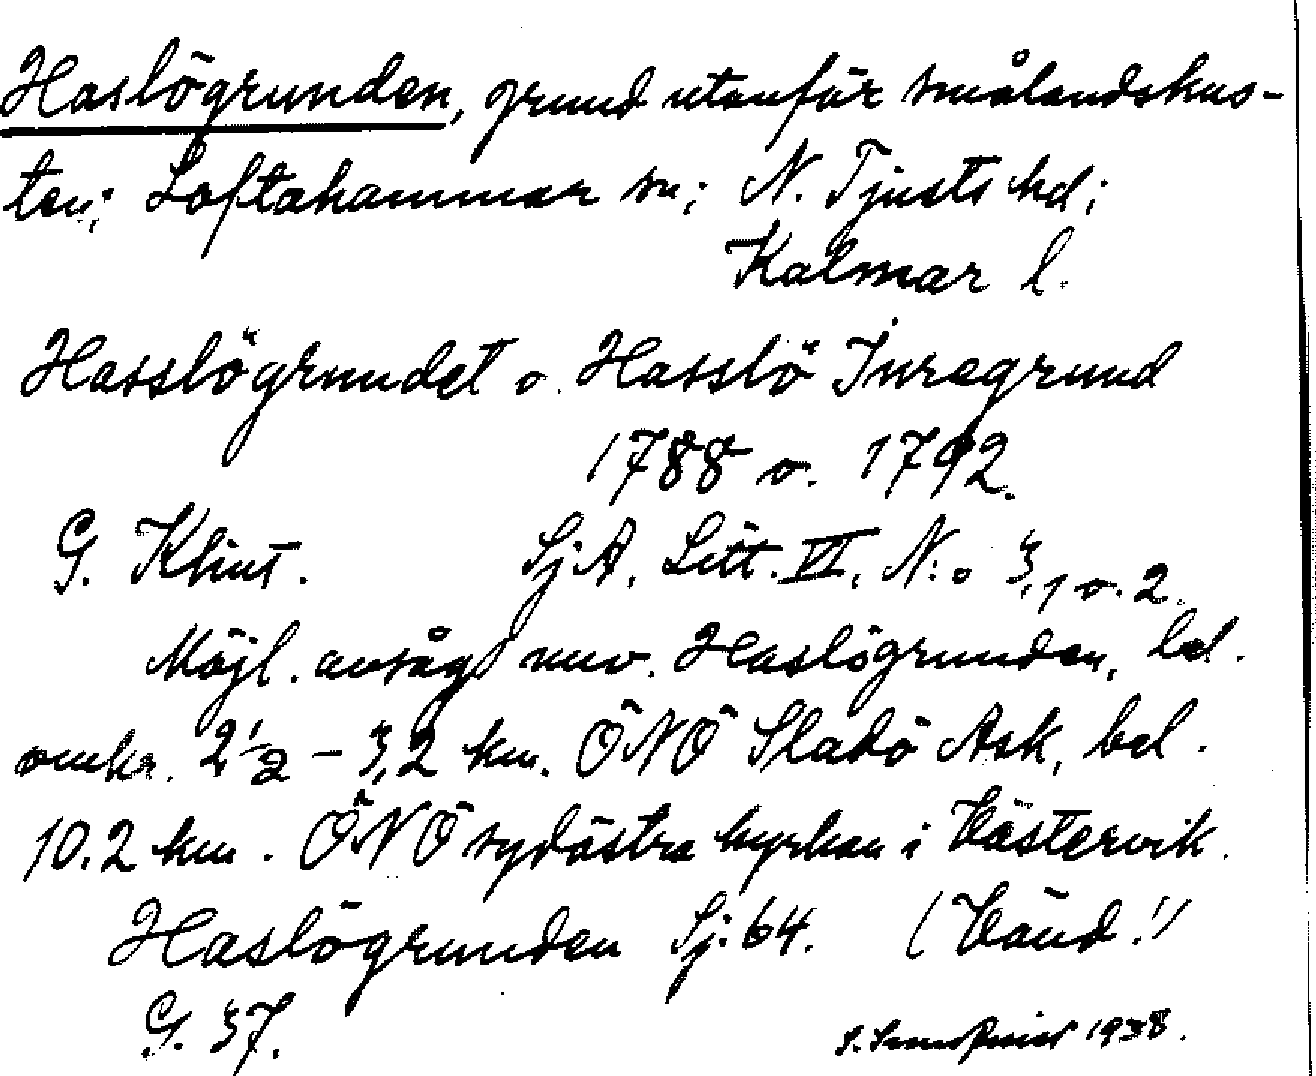 Haslögrunden, grund utanför smålandskus-
ten; Loftahammar sn; N. Tjusts hd;
Kalmar l.
Hasslögrundet o. Hasslö Inregrund
1788 o. 1792.
G. Klint. SjA, Litt. VI, N:o 3, 1 o. 2.
Möjl. avsågs nuv. Haslögrunden, bel.
omkr. 2 1/2 - 3,2 km. ÖNÖ Sladö Ask, bel.
10.2 km. ÖNÖ sydöstra kyrkan i Västervik.
Haslögrunden Sj. 64. (Vänd!)
G. 37.
1938.